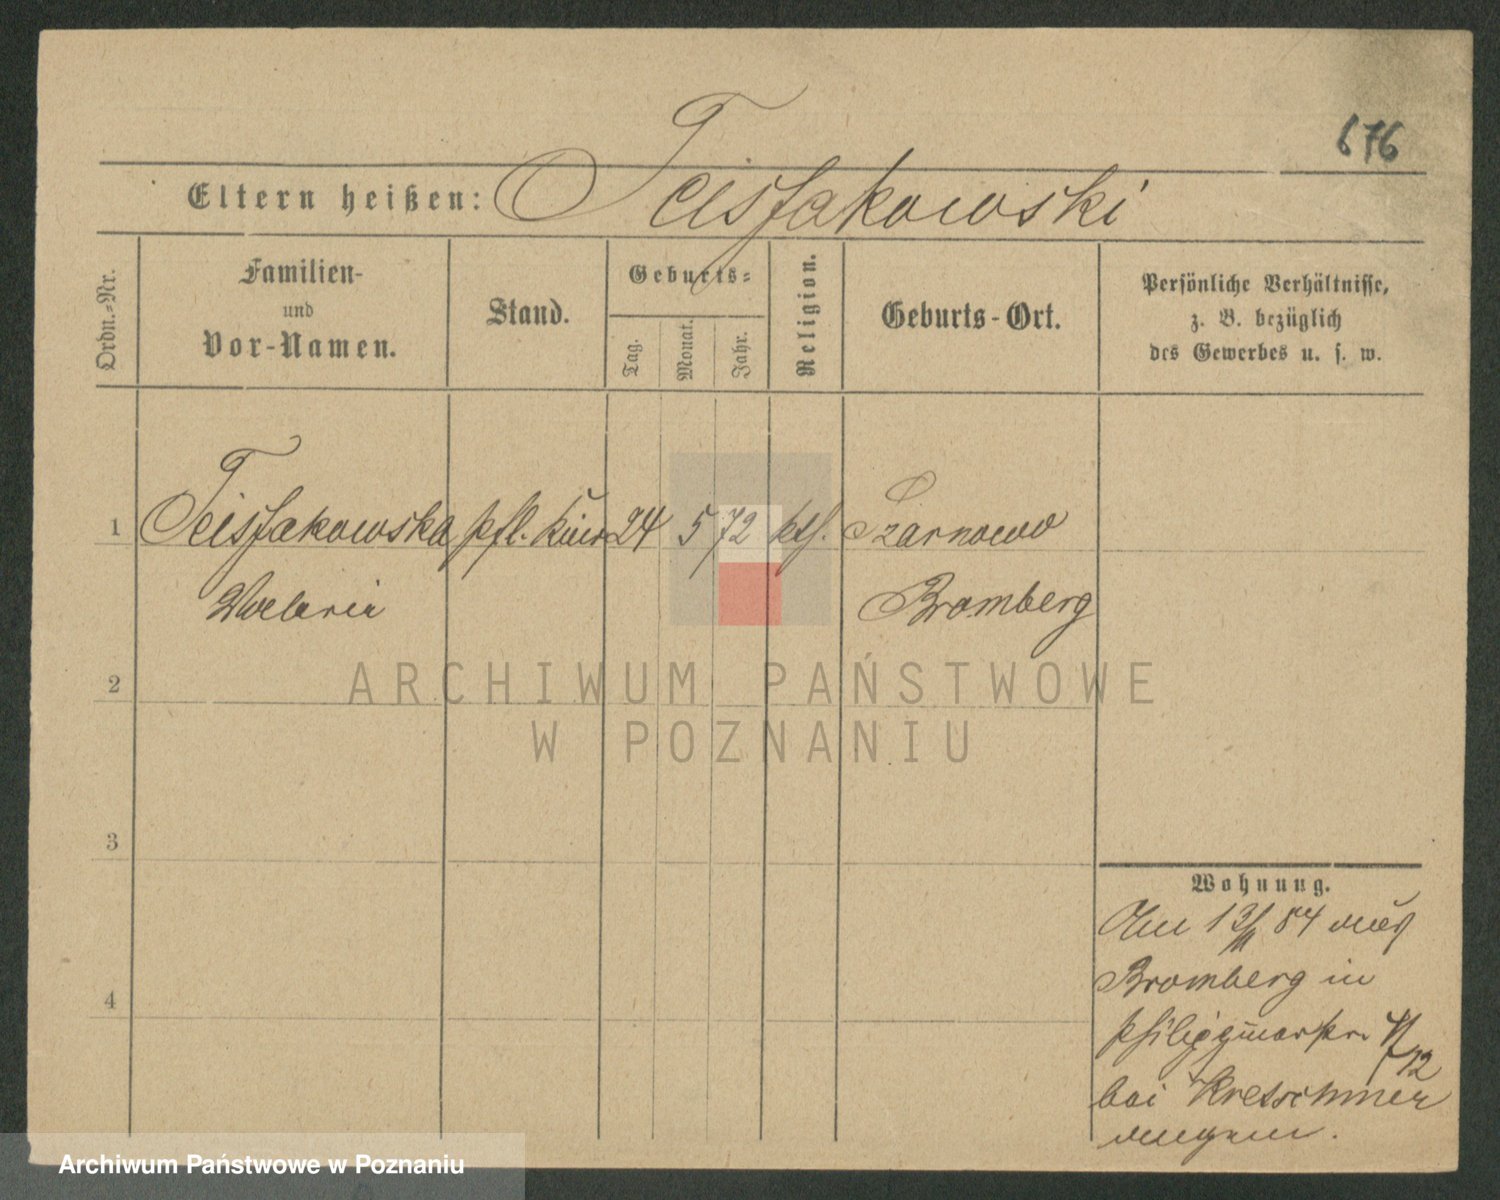 676
Eltern heißen: Teisfakowski
Ordn.-Nr.
Familien-
und
Vor-Namen.
Stand.
Geburts-
Tag.
Monat.
Jahr.
Religion.
Geburts-Ort.
Persönliche Verhältnisse,
z. B. bezüglich
des Gewerbes u. s. w.
1 Teisfakowska 24 5 72 kth. Szarnowo
Waleria Bromberg
2
3
4
ARCHIWUM PAŃSTWOWE
W POZNANIU
Wohnung.
Am 13/11 84 aus
Bromberg in
bei Kretschmer
Archiwum Państwowe w Poznaniu